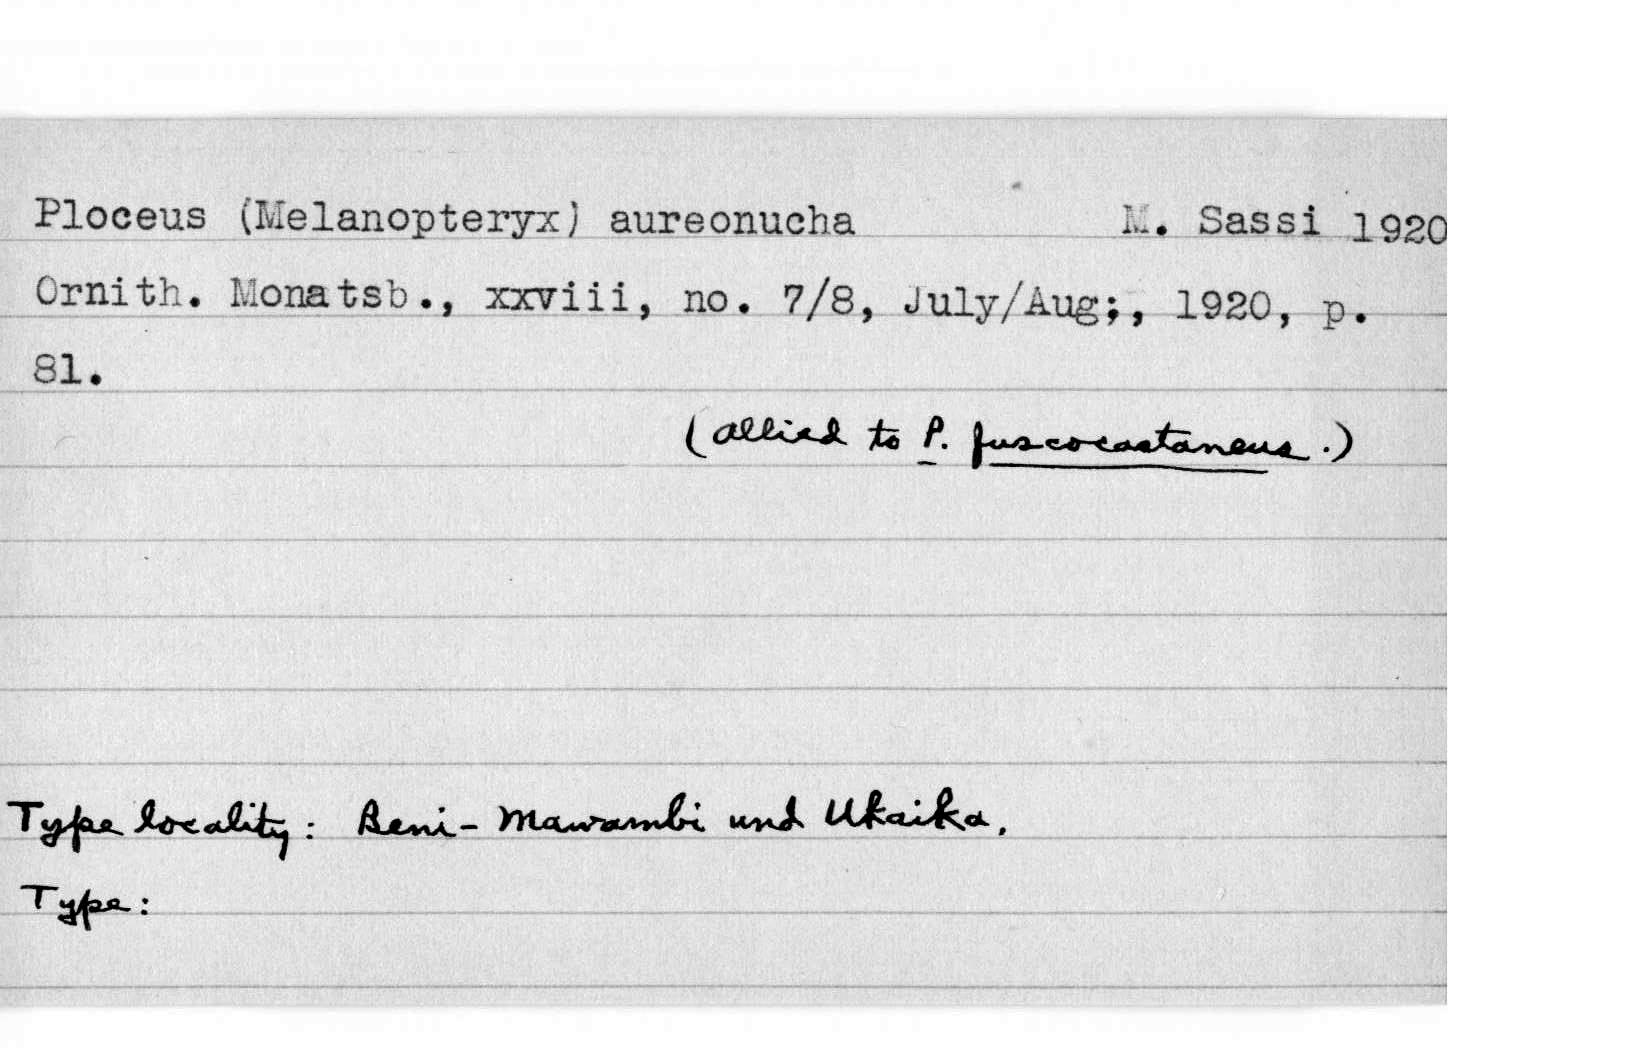 Ploceus (Melanopteryx) aureonucha M. Sassi 1920
Ornith. Monatsb., xxviii, no. 7/8, July/Aug;, 1920, p.
81.
(allied to P. fuscocastaneus.)
Type locality: Beni-Mawambi und Ukaika.
Type: